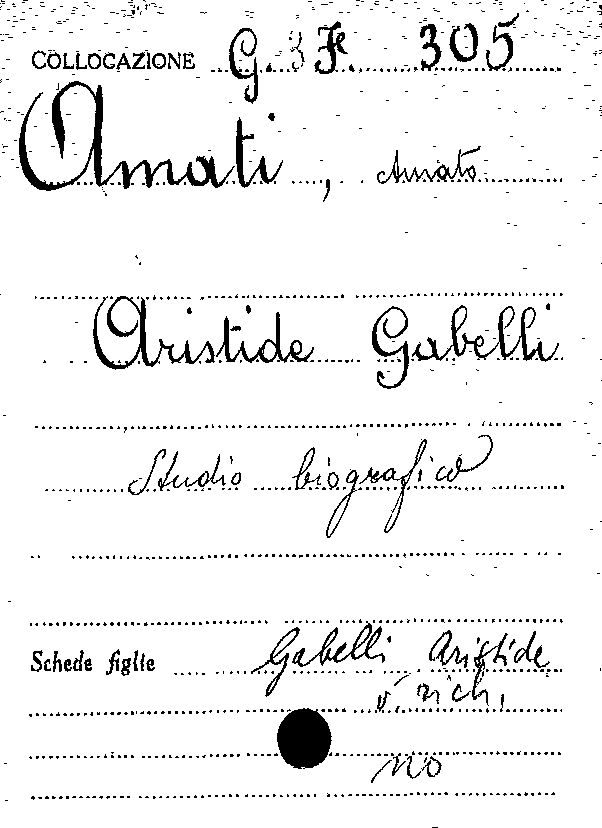 COLLOCAZIONE G. 3 F. 305
Amati, Amato
Aristide Gabelli
Studio biografico
Schede figlie Gabelli Aristide
v. rich.
no